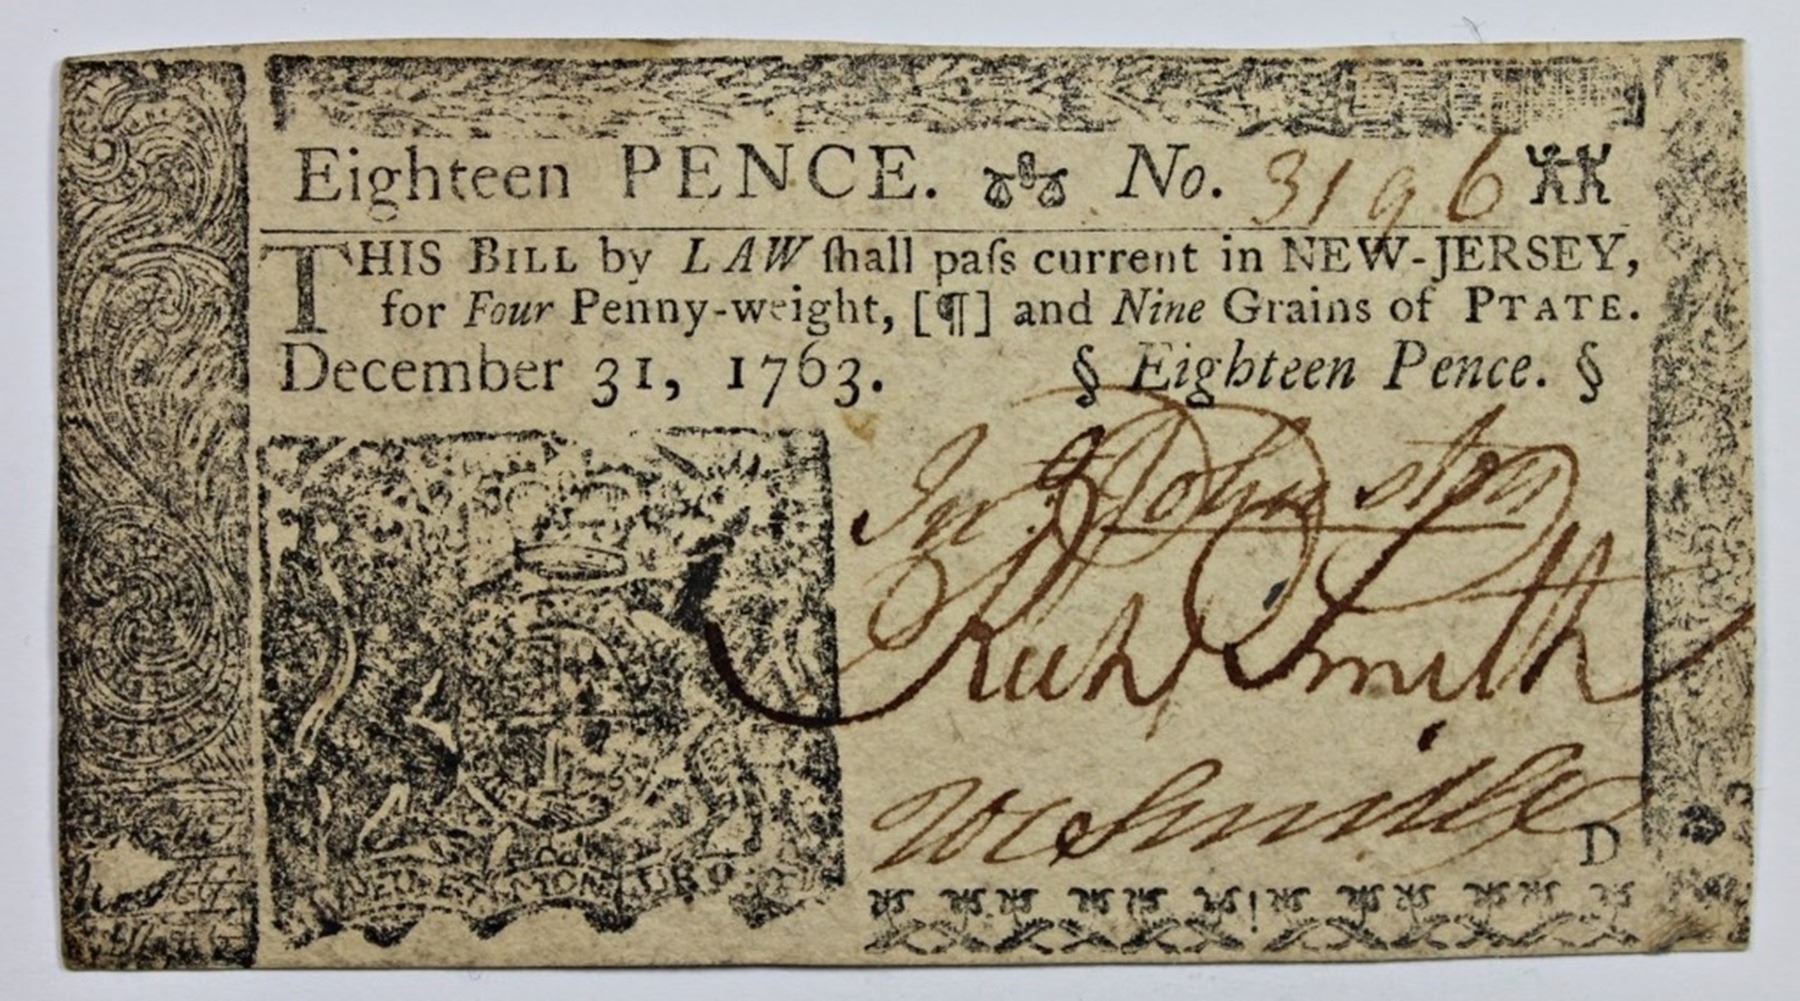 Eighteen PENCE. No. 3196
THIS BILL by LAW ſhall paſs current in NEW-JERSEY,
for Four Penny-weight, [¶] and Nine Grains of PTATE.
December 31, 1763. § Eighteen Pence. §
Jnº Johnston
Richd Smith
Wm Smith
D